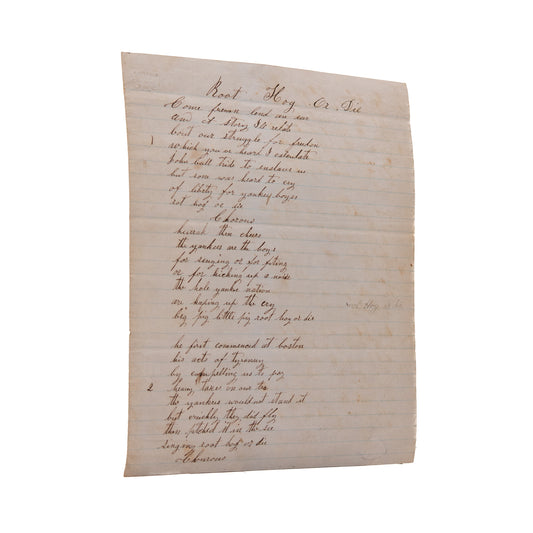 Root Hog Or Die
Come freman lend an ear
and A Story Ile relate
1 bout our struggle for freedom
which you ar heard I calculate
John bull tride to enslave us
but sone was heard to cry
of liberty for yankey boyes
rot hog or die
Chorous
hurrah then cheer
the yankees are the boys
for singing or for fiting
or for kicking up a noise
the hole yankee nation
are keping up the cry
big pig little pig root hog or die
he first commenced at boston
his acts of tyronny
by compelling us to pay
2 heavy taxes on our tea
the yankees would not stand it
but quickly they did fly
then pitched it in the
singing root hog or die
Chourous